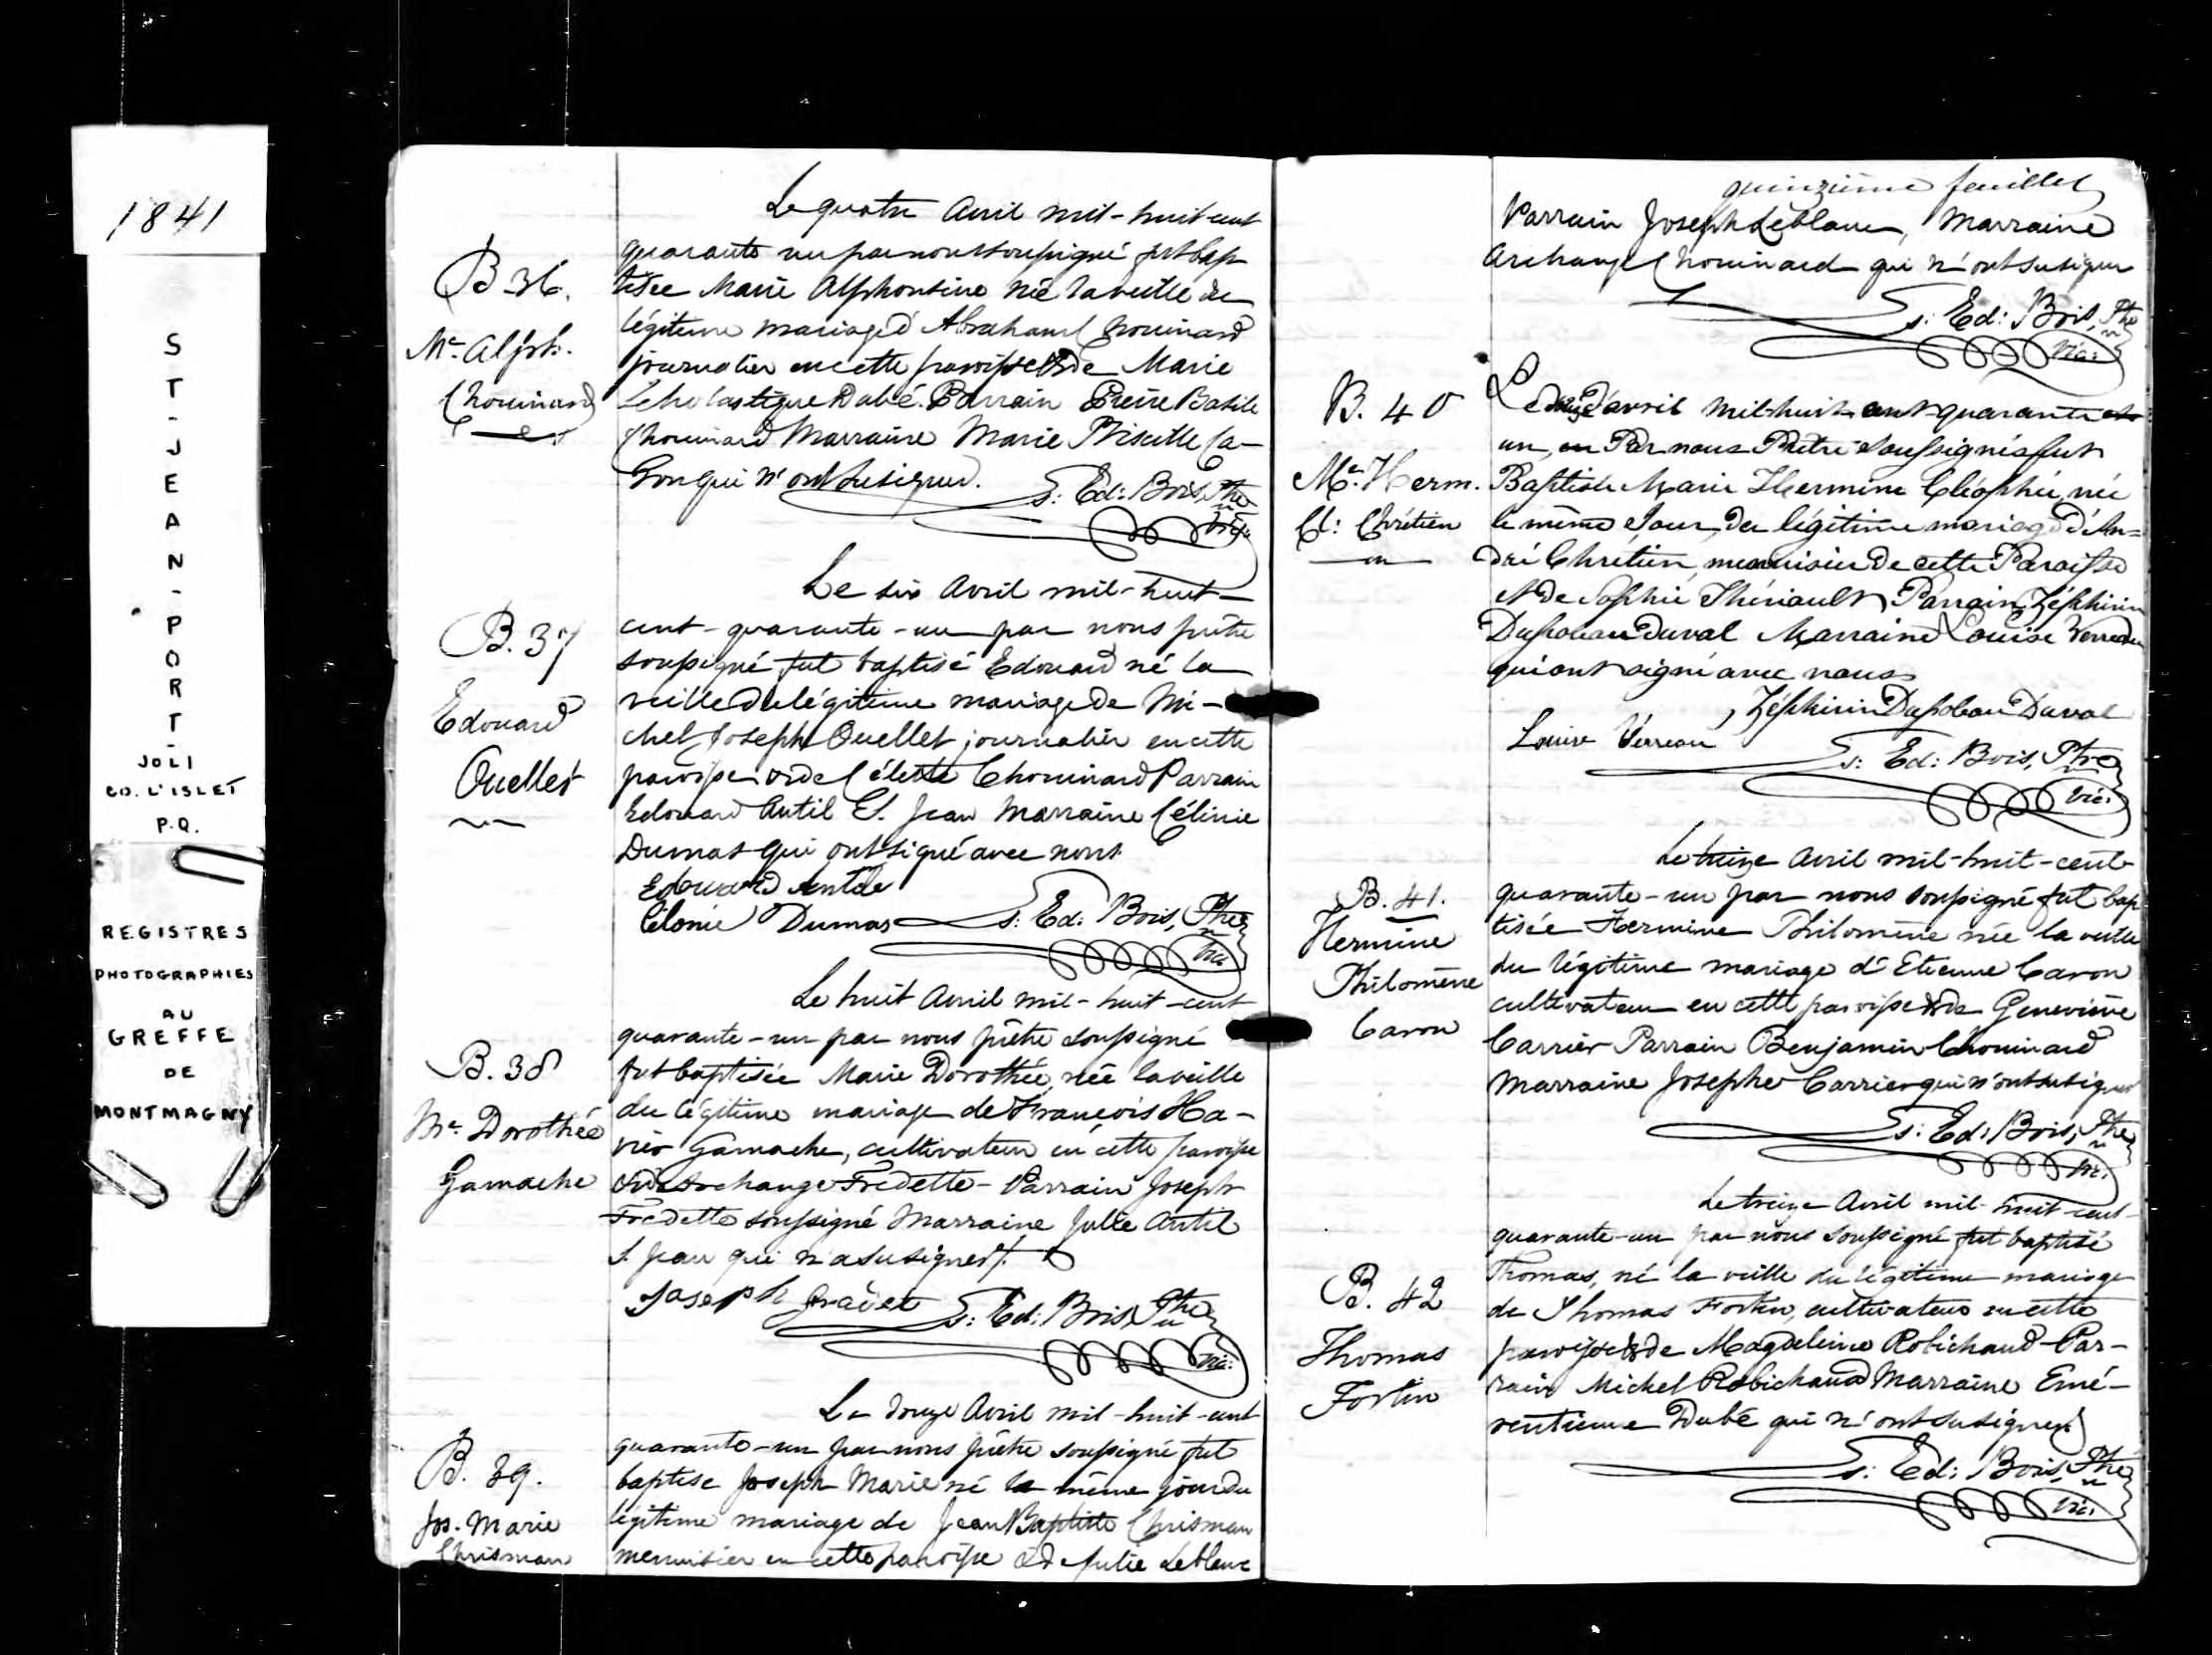 1841
S
T
-
J
E
A
N
-
P
O
R
T
-
JOLI
CO. L'ISLET
P.Q.
REGISTRES
PHOTOGRAPHIES
AU
GREFFE
DE
MONTMAGNY
B 36.
Mie Alph.
Chouinard
Le quatre Avril mil-huit-cent
quarante un par nous soussigné fut bap
tisée Marie Alphonsine née la veille du
légitime mariage d'Abraham Chouinard
journalier en cette paroisse & de Marie
Scholastique Dubé. Parrain Pierre Basile
Chouinard Marraine Marie Priscille Ca-
ron qui n'ont su signer.
S: Ed: Bois, Ptre
Vic:
B. 37
Edouard
Ouellet
Le six Avril mil-huit-
cent-quarante-un par nous prêtre
soussigné fut baptisé Edouard né la
veille du légitime mariage de Mi-
chel Joseph Ouellet journalier en cette
paroisse & de Céleste Chouinard Parrain
Edouard Antil S. Jean Marraine Célinie
Dumas qui ont signé avec nous
Edouard Antile
Célonie Dumas S: Ed: Bois, Ptre
Vic:
B. 38
Mie Dorothée
Gamache
Le huit Avril mil-huit-cent
quarante-un par nous prêtre soussigné
fut baptisée Marie Dorothée, née la veille
du légitime mariage de François Xa-
vier Gamache, cultivateur en cette paroisse
& d'Archange Fredette - Parrain Joseph
Fredette soussigné Marraine Julie Antil
S. Jean qui n'a su signer.
Joseph S: Ed: Bois, Ptre
Vic:
B. 39.
Jos. Marie
Chrisman
Le douze Avril mil-huit-cent
quarante-un par nous prêtre soussigné fut
baptisé Joseph Marie né le même jour du
légitime mariage de Jean Baptiste Chrisman
menuisier en cette paroisse & de Julie Leblanc
quinzième feuillet
Parrain Joseph Leblanc, Marraine
Archange Chouinard qui n'ont su signer
S: Ed: Bois, Ptre
Vic:
B. 40
Mie Herm.
Cl: Chrétien
Le douze d'avril mil-huit-cent-quarante et
un, Par nous Prêtre Soussigné fut
Baptisée Marie Hermine Cléophée, née
le même Jour, du légitime mariage d'An=
dré Chrétien, menuisier de cette Paroisse
et de Sophie Thériault, Parrain Zéphirin
Duponeau Duval Marraine Louise Verreau
qui ont signé avec nous
Zéphirin Duval
Louise Verreau
S: Ed: Bois, Ptre
Vic:
B. 41.
Hermine
Philomène
Caron
Le treize Avril mil-huit-cent-
quarante-un par nous soussigné fut bap
tisée Hermine Philomène née la veille
du légitime mariage d'Etienne Caron
cultivateur en cette paroisse & de Geneviève
Carrier Parrain Benjamin Chouinard
Marraine Josephe Carrier qui n'ont su signer
S: Ed: Bois, Ptre
Vic:
B. 42
Thomas
Fortin
Le treize Avril mil-huit-cent-
quarante-un par nous soussigné fut baptisé
Thomas, né la veille du légitime mariage
de Thomas Fortin, cultivateur en cette
paroisse & de Magdeleine Robichaud - Par-
rain Michel Robichaud Marraine Emé-
rentienne Dubé qui n'ont su signer.
S: Ed: Bois, Ptre
Vic: